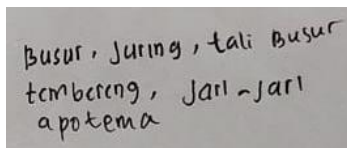 Busur, Juring, tali Busur
tembereng, Jari-jari
apotema